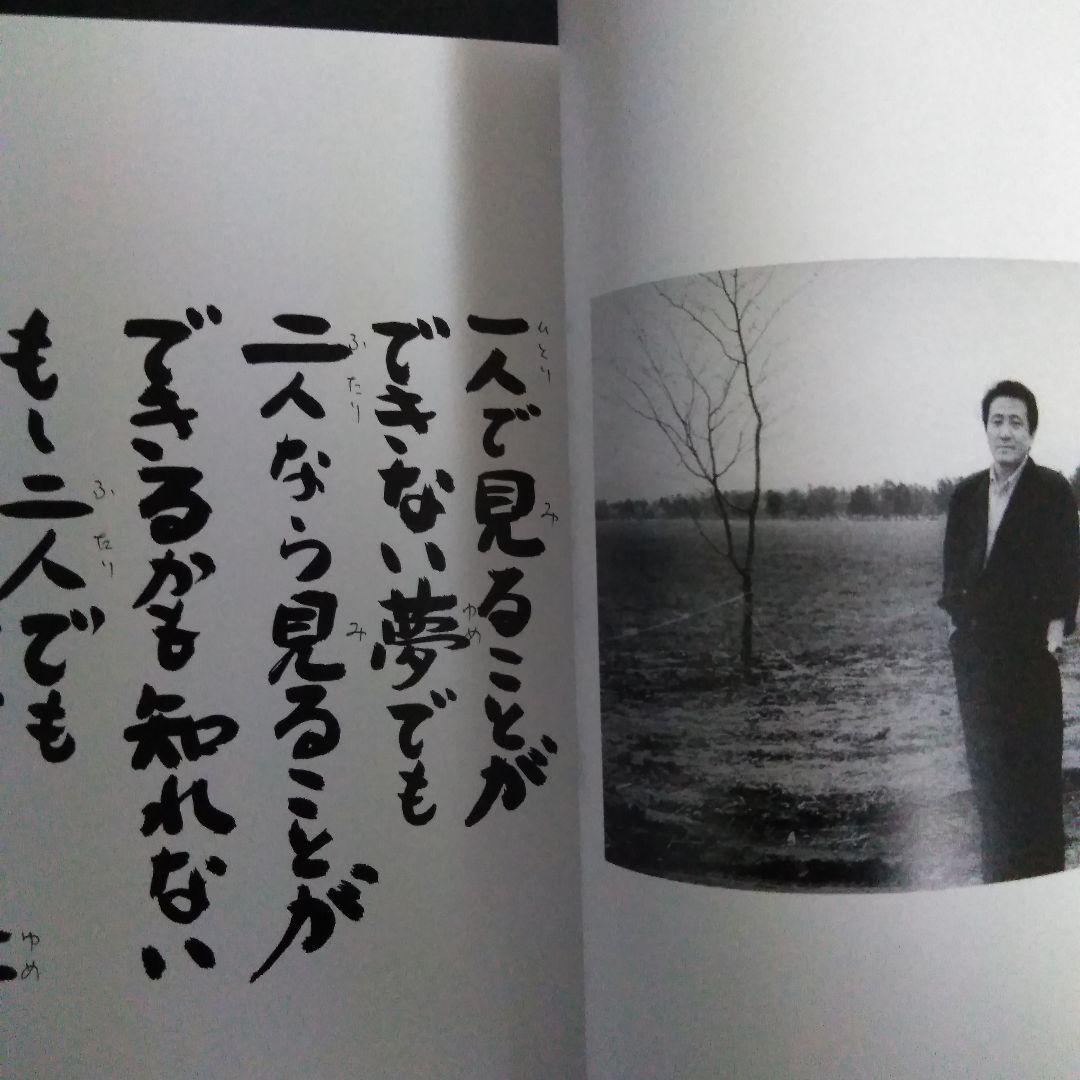 一人で見ることが
できない夢でも
二人なら見ることが
できるかも知れない
もし二人でも